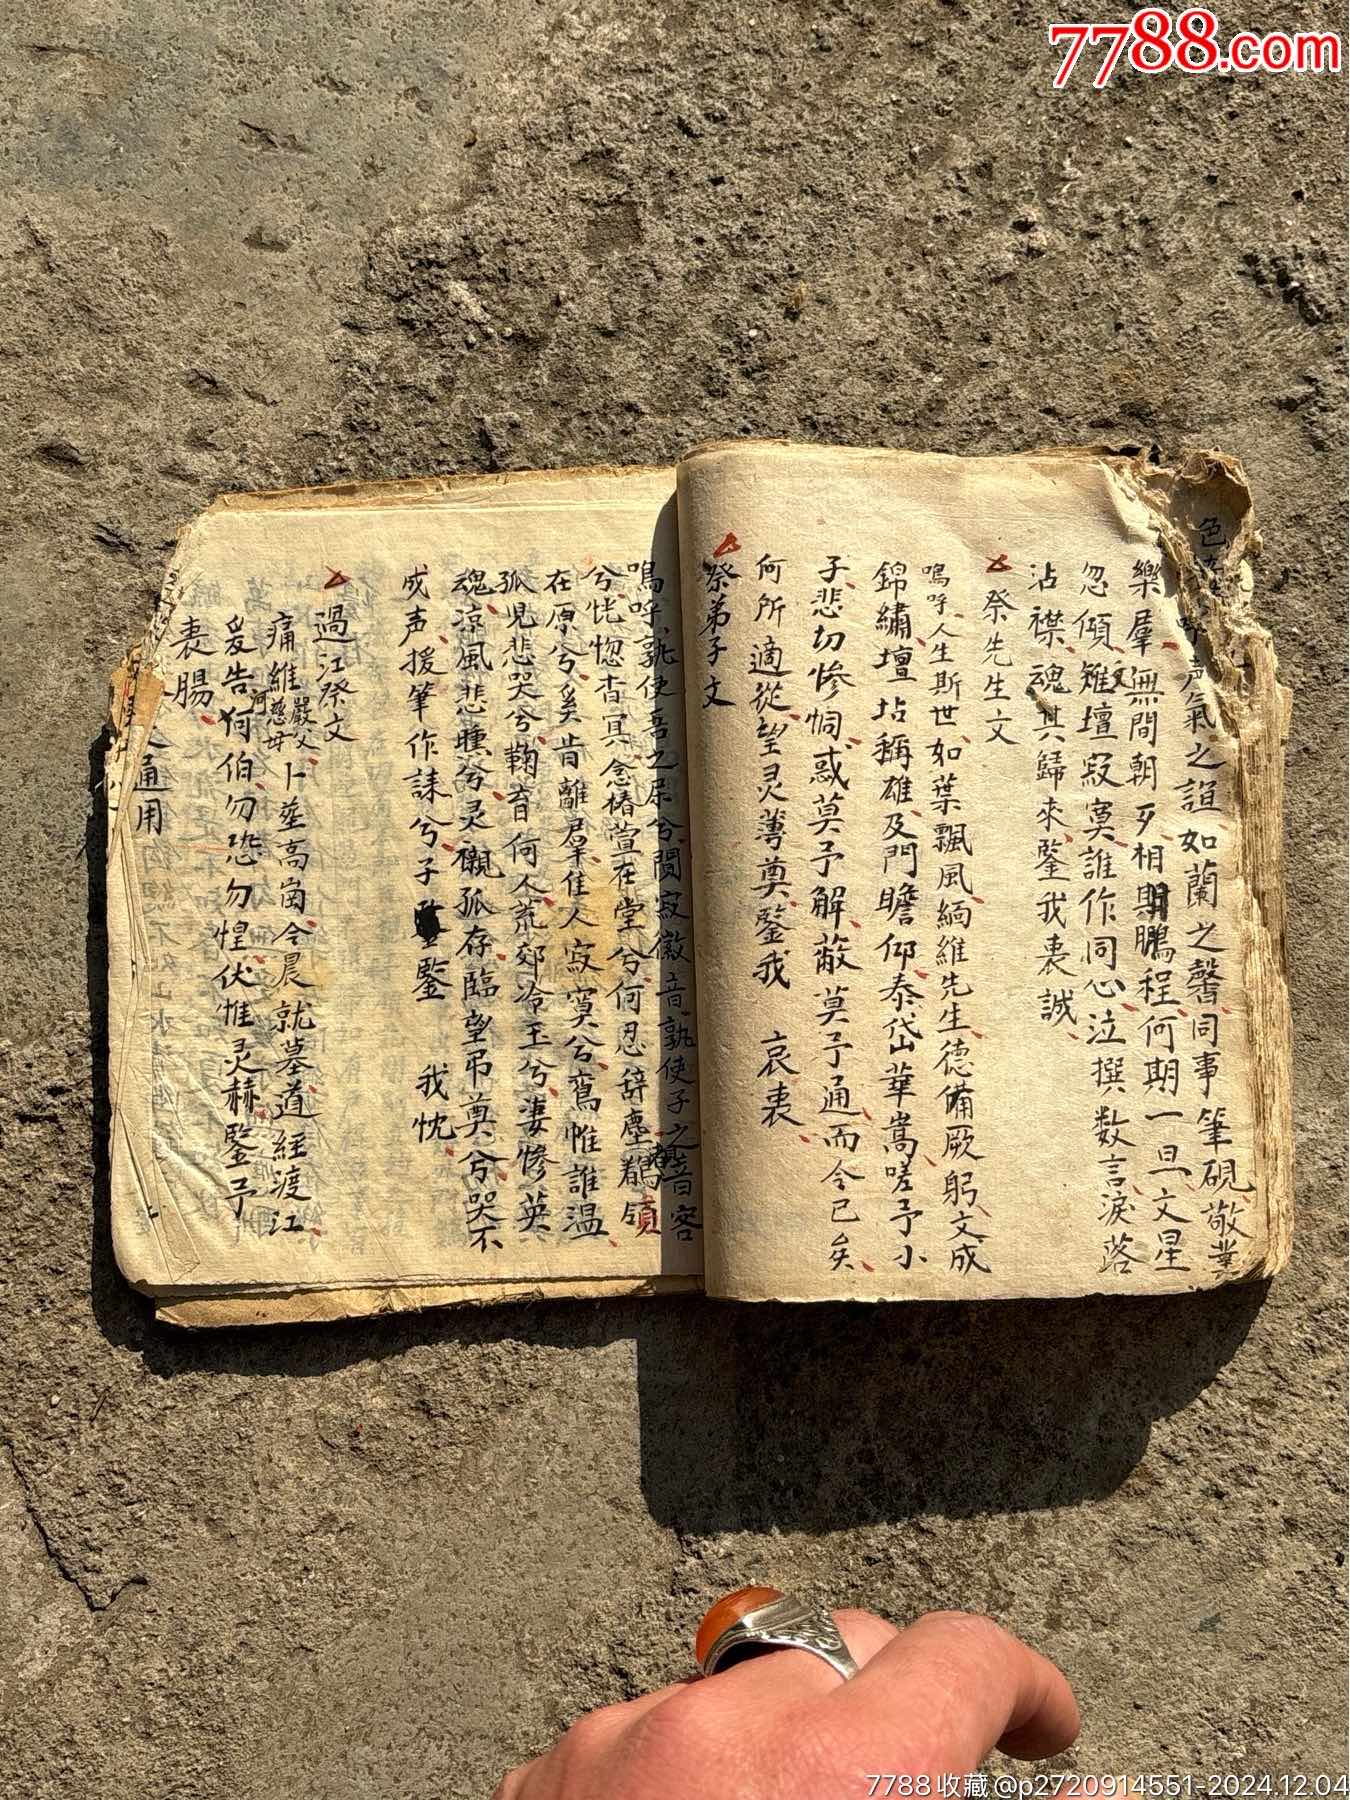 7788.com
声氣之誼如蘭之馨同事筆硯敬業
樂羣無間朝夕相期鵬程何期一旦文星
忽傾雉壇寂寞誰作同心泣撰数言淚落
沾襟魂其歸來鑒我衷誠
祭先生文
嗚呼人生斯世如葉飄風緬維先生德備厥躬文成
錦繡壇坫稱雄及門瞻仰泰岱華嵩嗟予小
子悲切慘恫惑莫予解蔽莫予通而今已矣
何所適從望灵薄奠鑒我 哀衷
祭弟子文
嗚呼孰使吾之屎兮閴寂徽音孰使子之音容
兮恍惚杳冥念椿萱在堂兮何忍辞塵鶺領
在原兮奚肯離羣佳人寂寞兮鴛帷誰温
孤児悲哭兮鞠育何人荒郊冷玉兮凄慘英
魂凉風悲曛兮灵襯孤存臨望吊奠兮哭不
成声援筆作誄兮子鑒 我忱
過江祭文
痛維嚴父慈母卜塟高崗今晨就墓道經渡江
爰告河伯勿恐勿惶伏惟灵赫鑒予
衷腸
通用
7788收藏@p2720914551-2024.12.04